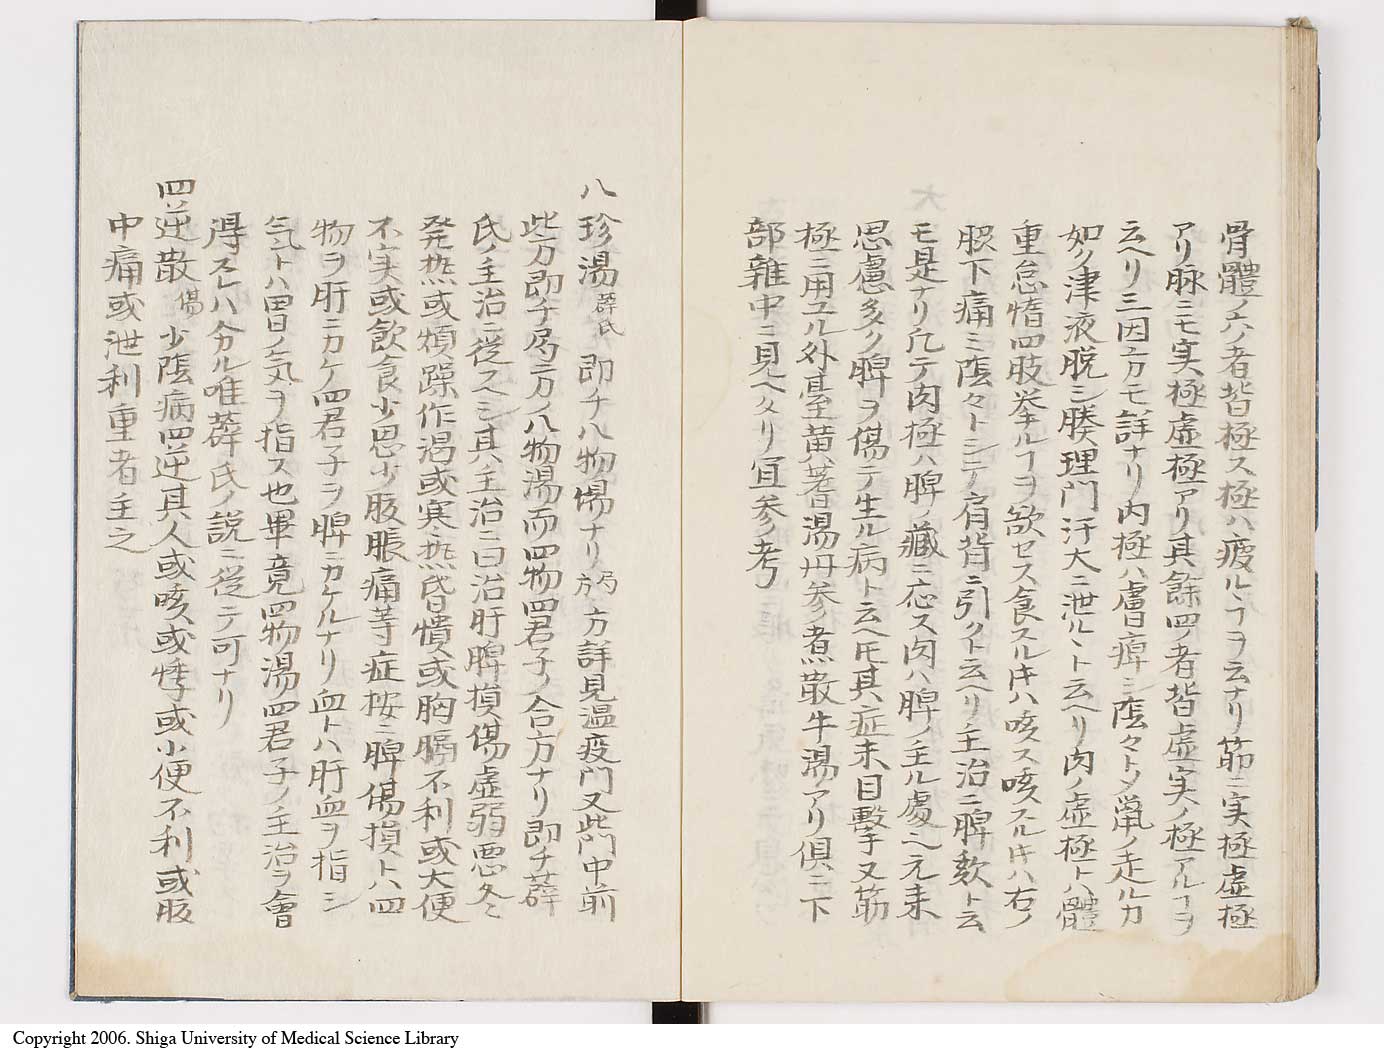 骨體ノ六ノ者皆極ス極ハ疲ルヽヿヲ云ナリ筋ニ実極虚極
アリ脉ニモ実極虚極アリ其餘四ノ者皆虚実ノ極アルヿヲ
云ヘリ三因方モ詳ナリ内極ハ膚痺シ蔭々トメ鼠ノ走ルカ
如ク津液脱シ腠理門汗大ニ泄ルヽト云ヘリ肉ノ虚極トハ體
重怠惰四肢挙ルヿヲ欲セス食スル𪜈ハ咳ス咳スル𪜈ハ右ノ
脇下痛ミ蔭々トシテ肩背ニ引クト云ヘリ主治ニ脾欬ト云
モ是ナリ凡テ肉極ハ脾ノ藏ニ応ス肉ハ脾ノ主ル處ヘ元来
思慮多ク脾ヲ傷テ生ル病ト云ヘ𪜈其症未目擊又筋
極ニ用ユル外臺黄蓍湯丹参煮散牛湯アリ俱ニ下
部雜中ニ見ヘタリ宜参考
八珍湯 薜氏 即チ八物湯ナリ 局方 方詳見温疫門又此門中前
此方即チ局方ノ八物湯而四物四君子ノ合方ナリ即チ薜
氏ノ主治ニ從スヘシ其主治ニ曰治肝脾損傷虚弱悪冬
発𤍠或煩躁作渇或寒𤍠昏憒或胸膈不利或大便
不実或飲食少思少腹脹痛等症按ニ脾傷損トハ四
物ヲ肝ニカケ四君子ヲ脾ニカケルナリ血トハ肝血ヲ指シ
気トハ胃ノ気ヲ指ス也畢竟四物湯四君子ノ主治ヲ會
得スレハ分ル唯薜氏ノ説ニ從テ可ナリ
四逆散 傷 少蔭病四逆其人或咳或悸或小便不利或腹
中痛或泄利重者主之
Copyright 2006. Shiga University of Medical Science Library